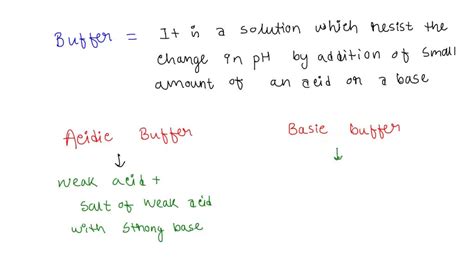 Buffer = It is a solution which resist the
change in pH by addition of small
amount of an acid or a base
Acidic Buffer
Basic buffer
↓
↓
weak acid +
salt of weak acid
with strong base